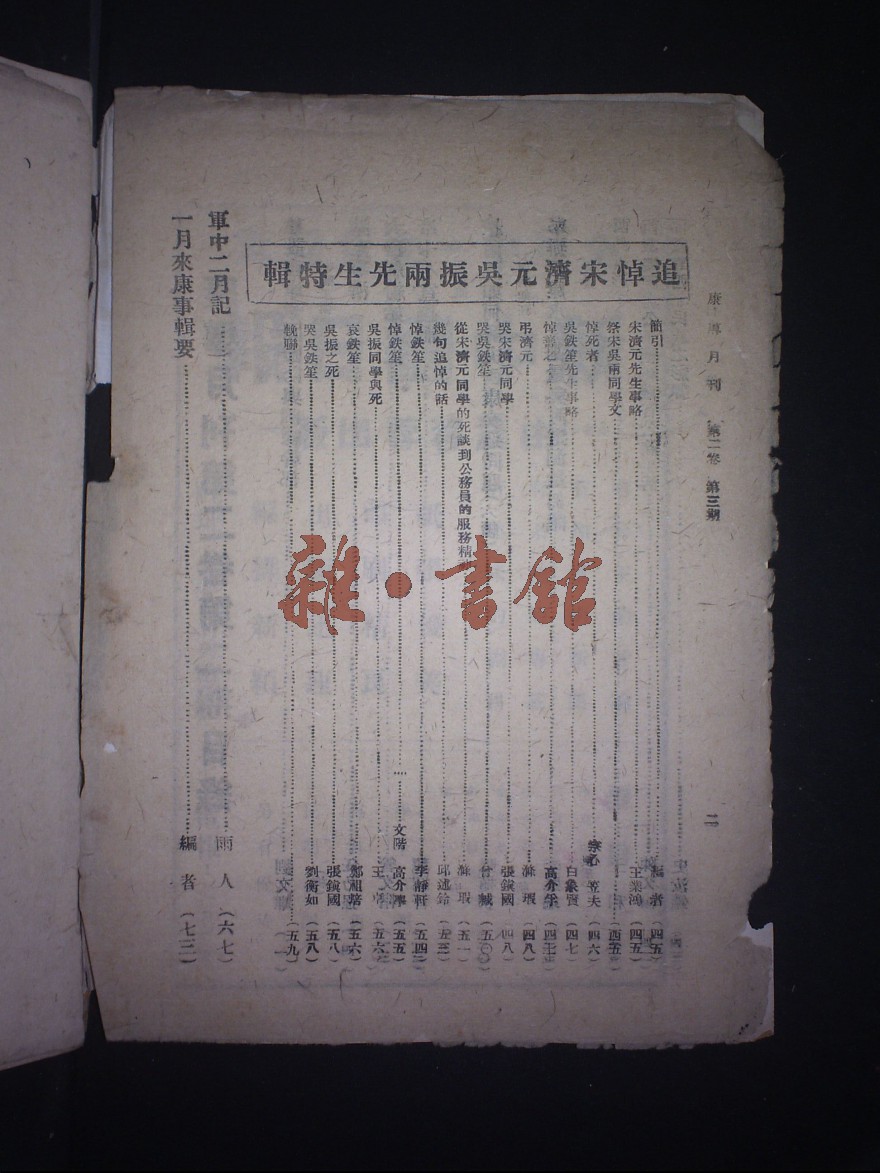 康導月刊 第二卷 第三期
二
追悼宋濟元吳振兩先生特輯
簡引 編者(四五)
宋濟元先生事略 王業鴻(四五)
祭宋吳兩同學文
悼死者 宗心 笠夫(四六)
吳鉄笙先生事略 白象賢(四七)
高介孚(四七)
弔濟元 滌瑕(四八)
哭宋濟元同學 張鎭國(四八)
哭吳鉄笙
從宋濟元同學的死談到公務員的服務精 滌瑕(五一)
幾句追悼的話 邱述鈐(五三)
悼鉄笙 李靜軒(五四)
悼鉄笙 文階 高介
吳振同學與死 王
哀鉄笙 鄭祖蔭(五六)
吳振之死 張鎭國(五八)
哭吳鉄笙 劉衡如(五八)
輓聯 (五九)
軍中二月記 雨人(六七)
一月來康事輯要 編者(七三)
雜·書館